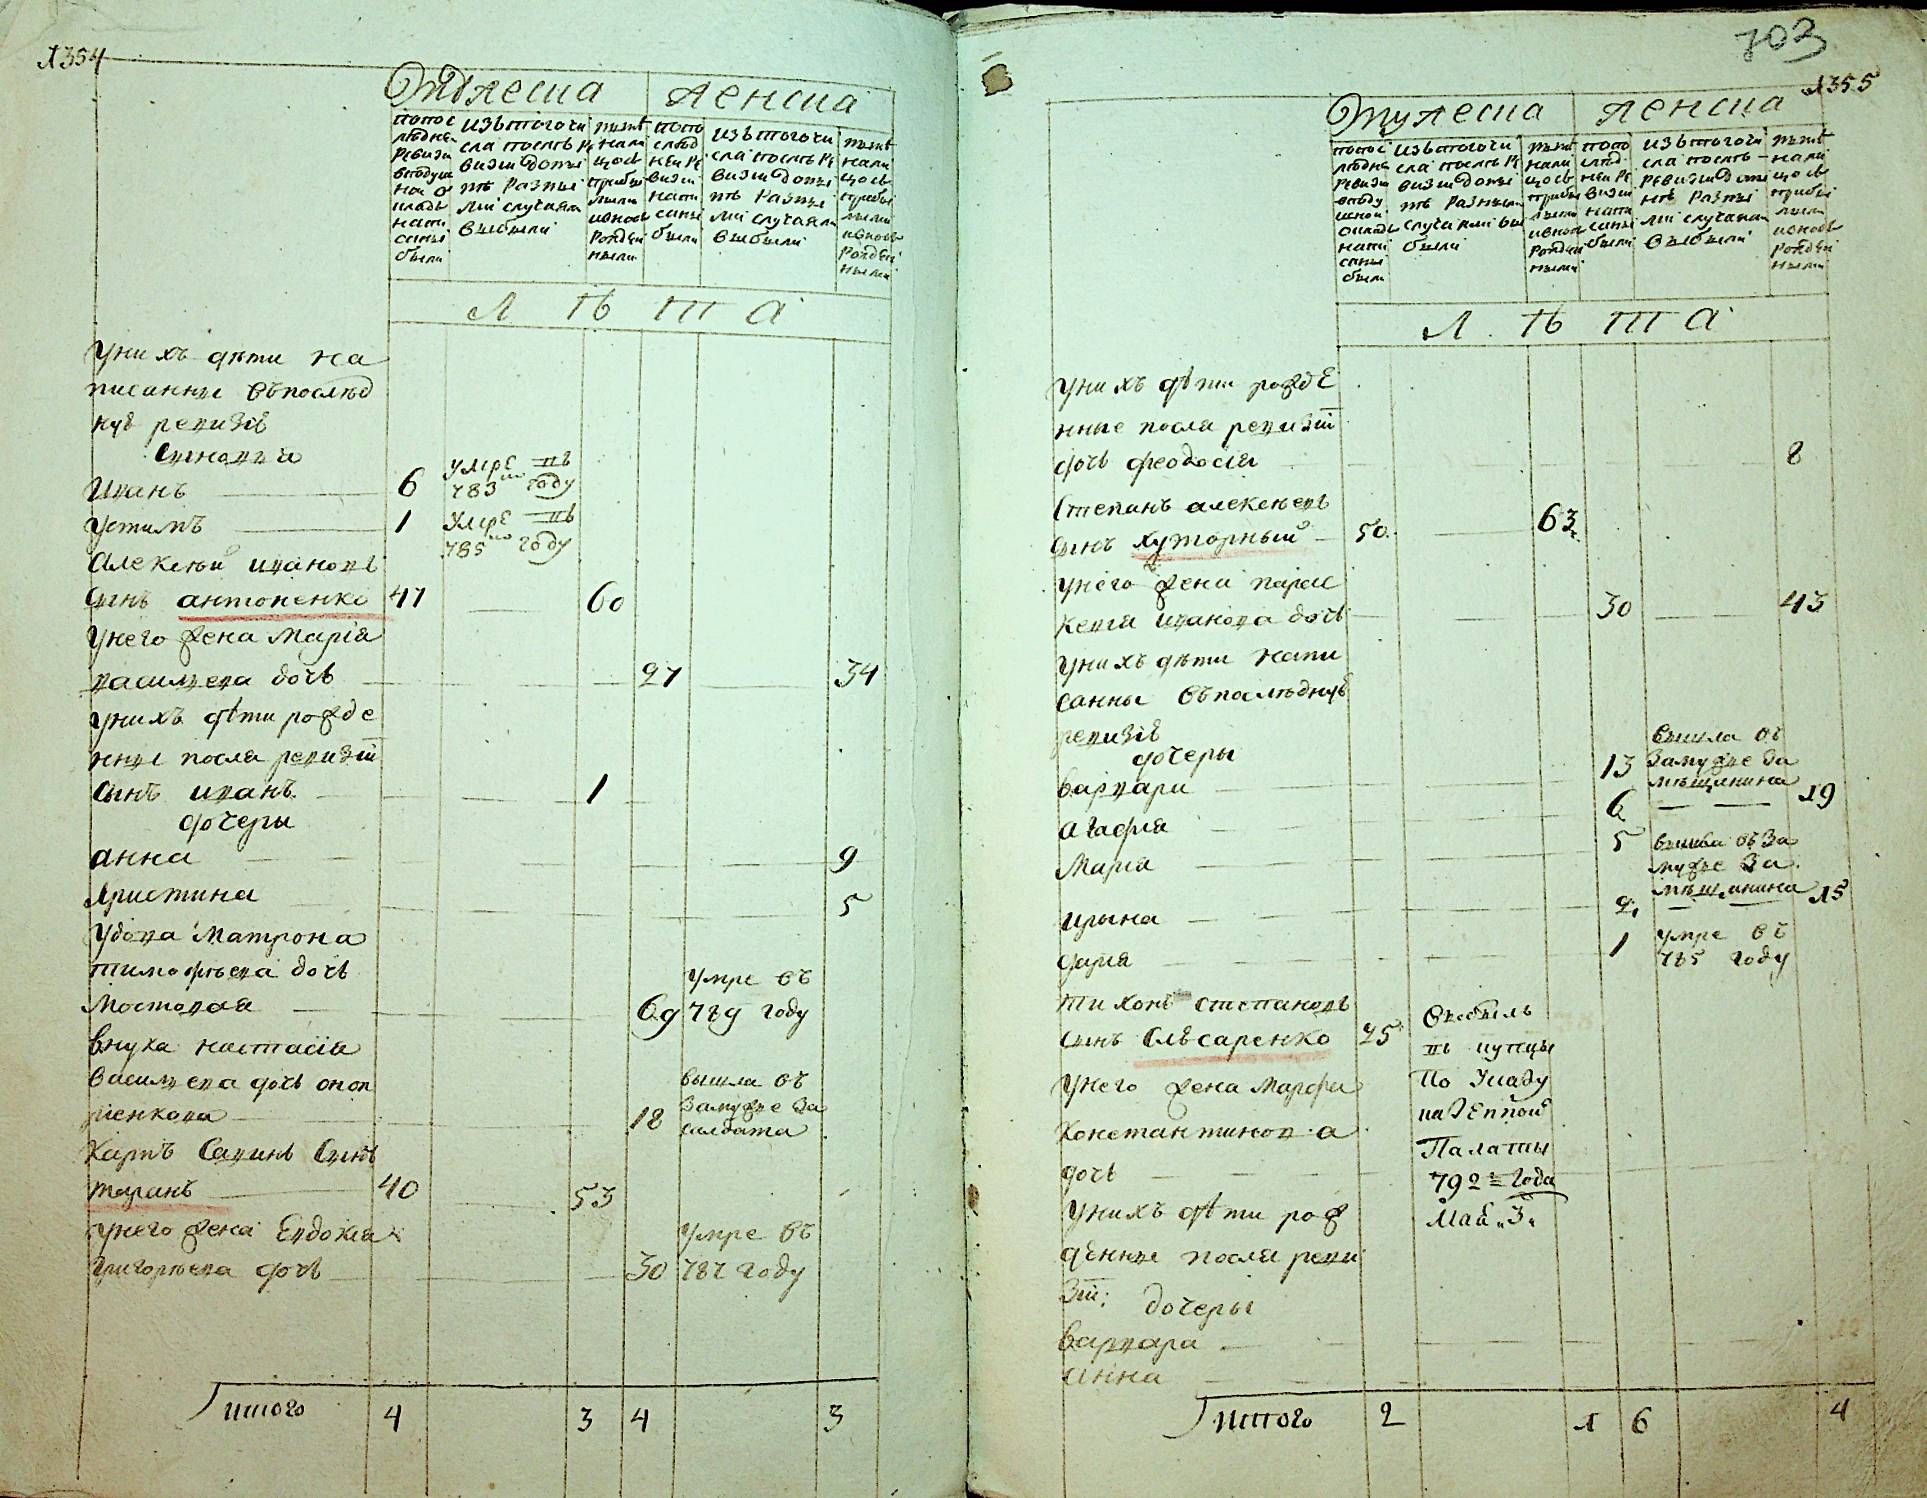 1354
Мужеска
женска
попос
ледне
ревизи
вподуш
ной о
кладе
напи
саны
были
изътогочи
сла послѣ ре
визии до ны
нѣ разны
ми случаями
выбыли
нынѣ
нали
цо съ
прибы
лыми
ивновь
рожден
ными
попо
след
ней ре
визии
напи
саны
были
изътогочи
сла послѣ ре
визии до ны
нѣ разны
ми случаями
выбыли
нынѣ
нали
цо съ
прибы
лыми
ивновь
рожден
ными
Л Ѣ Т А
уних дѣти на
писанные въ послѣд
ную ревизію
Сыновья
Иванъ 6 умре въ 783мъ году
Устимъ 1 умре въ 785мъ году
Алексѣй ивановъ
сынъ антоненко 47 60
Унего жена Марія
васильева дочь 27 34
Унихъ дѣти рожде
нные после ревизіи
Сынъ иванъ 1
дочеры
анна 9
Христина 5
Удова Матрона
тимофѣева дочь
Мостовая 69 умре въ 789 году
Внука настасія
васильева дочь
18 вышла въ замужже за солдата
Карпъ Савинъ Сынъ
таранъ 40 53
унего жена Евдокія
григорьева дочь 30 умре въ 787 году
Итого 4 3 4 3
703
1355
Мужеска
женска
попос
ледне
ревизи
вподу
шной
окладе
напи
саны
были
изътогочи
сла послѣ ре
визии до ны
нѣ разным
случаями вы
были
нынѣ
нали
цо съ
прибы
лыми
ивновь
рожден
ными
попо
след
ней ре
визии
напи
саны
были
изътогочи
сла послѣ
ревизии до ны
нѣ разны
ми случаями
выбыли
нынѣ
нали
цо съ
прибы
лыми
ивновь
рожден
ными
Л Ѣ Т А
унихъ дѣти рожде
нные после ревизіи
дочь феодосія 8
Степанъ алексѣевъ
сынъ хуторный 50 63
унего жена парас
кевія иванова дочь 30 43
унихъ дѣти напи
санны въ послѣдную
ревизію
дочеры
варвара 13 вышла въ замужже за мѣщанина
агафія 6 19
Марія 5 вышла въ замужже за мѣщанина
ирина 2 15
дарія 1 умре въ 785 году
тихонъ степановъ
сынъ Слѣсаренко 25 выбылъ
въ купцы
по указу
казенной
Палаты
792 года
Маія 3
унего жена Марфа
Константинова
дочь
унихъ дѣти рож
денные после реви
зіи; дочеры
варвара 12
анна
Итого 2 1 6 4